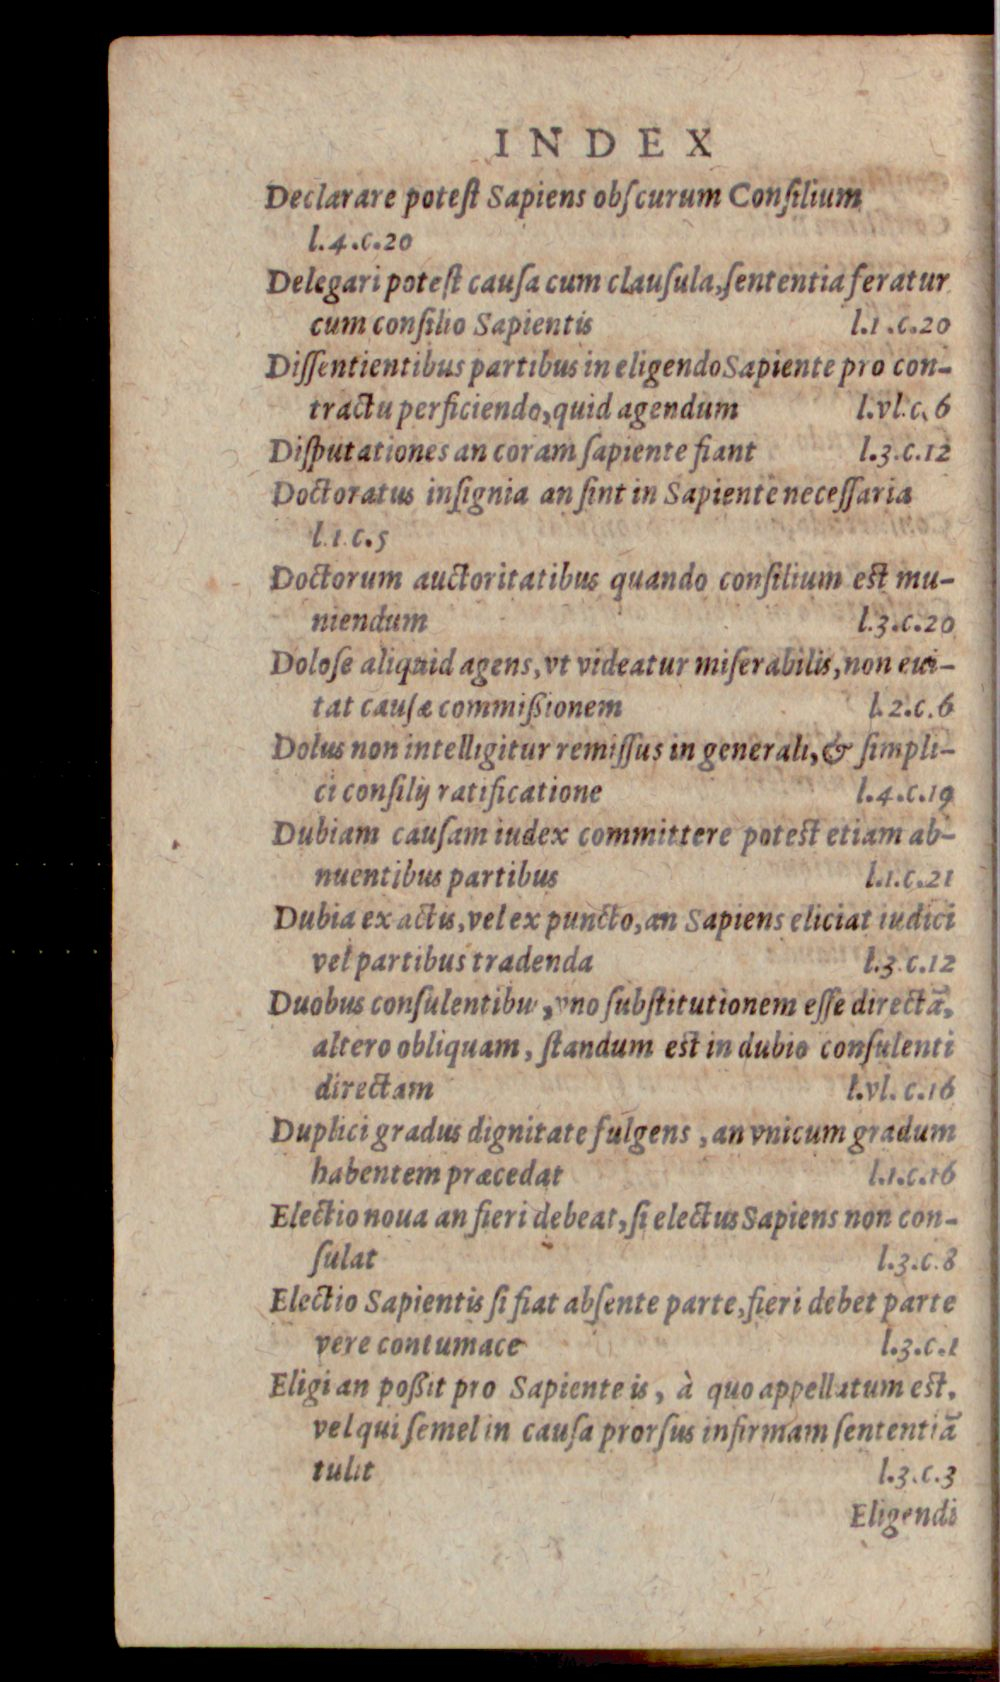 INDEX
Declarare poteſt Sapiens obſcurum Conſilium
l.4.c.20
Delegari poteſt cauſa cum clauſula, ſententia feratur
cum conſilio Sapientis l.1.c.20
Diſſentientibus partibus in eligendo Sapiente pro con-
tractu perficiendo, quid agendum l.vl.c.6
Diſputationes an coram ſapiente fiant l.3.c.12
Doctoratus inſignia an ſint in Sapiente neceſſaria
l.1.c.5
Doctorum auctoritatibus quando conſilium est mu-
niendum l.3.c.20
Doloſe aliquid agens, vt videatur miſerabilis, non eui-
tat cauſæ commißionem l.2.c.6
Dolus non intelligitur remiſſus in generali, & ſimpli-
ci conſilij ratificatione l.4.c.19
Dubiam cauſam iudex committere potest etiam ab-
nuentibus partibus l.1.c.21
Dubia ex actis, vel ex puncto, an Sapiens eliciat iudici
vel partibus tradenda l.3.c.12
Duobus conſulentibu, vno ſubſtitutionem eſſe directā,
altero obliquam, ſtandum est in dubio conſulenti
directam l.vl.c.16
Duplici gradus dignitate fulgens, an vnicum gradum
habentem præcedat l.1.c.16
Electio noua an fieri debeat, ſi electus Sapiens non con-
ſulat l.3.c.8
Electio Sapientis ſi fiat abſente parte, fieri debet parte
vere contumace l.3.c.1
Eligi an poßit pro Sapiente is, à quo appellatum est,
vel qui ſemel in cauſa prorſus infirmam ſententiā
tulit l.3.c.3
Eligendi